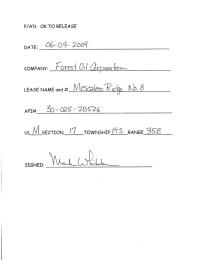 P/A'D: OK TO RELEASE
DATE: 06-09-2009
COMPANY: Forest Oil Corporation
LEASE NAME and #: Mescalero Ridge No. 8
API# 30-025-28526
UL M SECTION 17 TOWNSHIP 19S RANGE 35E
SIGNED: Mark Whitaker